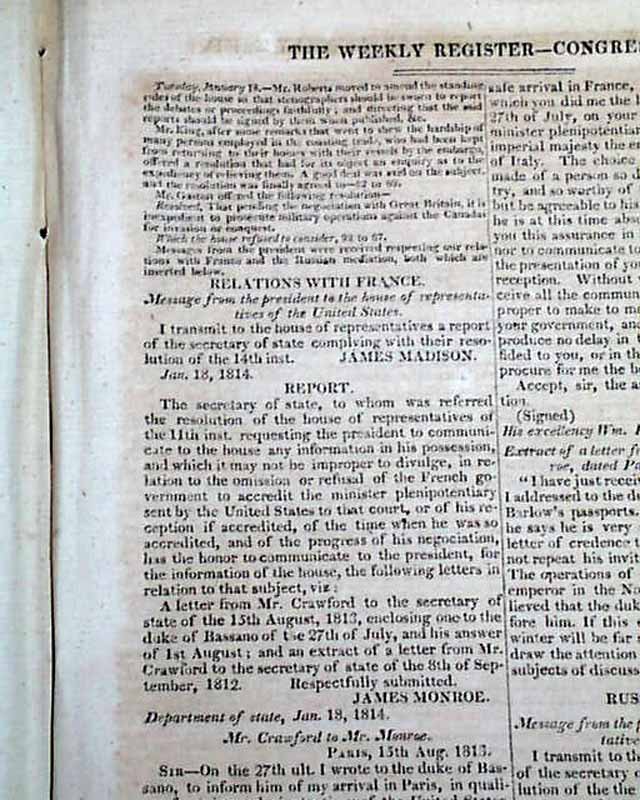 THE WEEKLY REGISTER—CONGRE
Tuesday, January 18.—Mr. Roberts moved to amend the standing
rules of the house so that stenographers should be sworn to report
the debates or proceedings faithfully; and directing that the said
reports should be signed by them when published, &c.
Mr. King, after some remarks that went to shew the hardship of
many persons employed in the coasting trade, who had been kept
from returning to their homes with their vessels by the embargo,
offered a resolution that had for its object an enquiry as to the
expediency of relieving them. A good deal was said on the subject,
and the resolution was finally agreed to—
Mr. Gaston offered the following resolution—
Resolved, That pending the negociation with Great Britain, it is
inexpedient to prosecute military operations against the Canadas
for invasion or conquest.
Which the house refused to consider, 92 to 67.
Messages from the president were received respecting our rela-
tions with France and the Russian mediation, both which are
inserted below.
RELATIONS WITH FRANCE.
Message from the president to the house of representa-
tives of the United States.
I transmit to the house of representatives a report
of the secretary of state complying with their reso-
lution of the 14th inst. JAMES MADISON.
Jan. 18, 1814.
REPORT.
The secretary of state, to whom was referred
the resolution of the house of representatives of
the 11th inst. requesting the president to communi-
cate to the house any information in his possession,
and which it may not be improper to divulge, in re-
lation to the omission or refusal of the French go-
vernment to accredit the minister plenipotentiary
sent by the United States to that court, or of his re-
ception if accredited, of the time when he was so
accredited, and of the progress of his negociation,
has the honor to communicate to the president, for
the information of the house, the following letters in
relation to that subject, viz:
A letter from Mr. Crawford to the secretary of
state of the 15th August, 1813, enclosing one to the
duke of Bassano of the 27th of July, and his answer
of 1st August; and an extract of a letter from Mr.
Crawford to the secretary of state of the 8th of Sep-
tember, 1812. Respectfully submitted.
JAMES MONROE.
Department of state, Jan. 18, 1814.
Mr. Crawford to Mr. Monroe.
PARIS, 15th Aug. 1813.
SIR—On the 27th ult. I wrote to the duke of Bas-
sano, to inform him of my arrival in Paris, in quali-
safe arrival in France,
which you did me the
27th of July, on your
minister plenipotentia
imperial majesty the em
of Italy. The choice
made of a person so d
try, and so worthy of
but be agreeable to his
he is at this time abse
you this assurance in
nor to communicate to
the presentation of you
reception. Without
ceive all the commun
proper to make to m
your government, and
produce no delay in t
fided to you, or in th
procure for me the b
Accept, sir, the as
tion.
(Signed)
His excellency Wm.
Extract of a letter fr
roe, dated Pa
"I have just receiv
I addressed to the d
Barlow's passports.
he says he is very
letter of credence t
not repeat his invit
The operations of
emperor in the No
lieved that the duk
fore him. If this
winter will be far
draw the attention
subjects of discuss
RUS
Message from the p
tative
I transmit to th
of the secretary
lution of the the